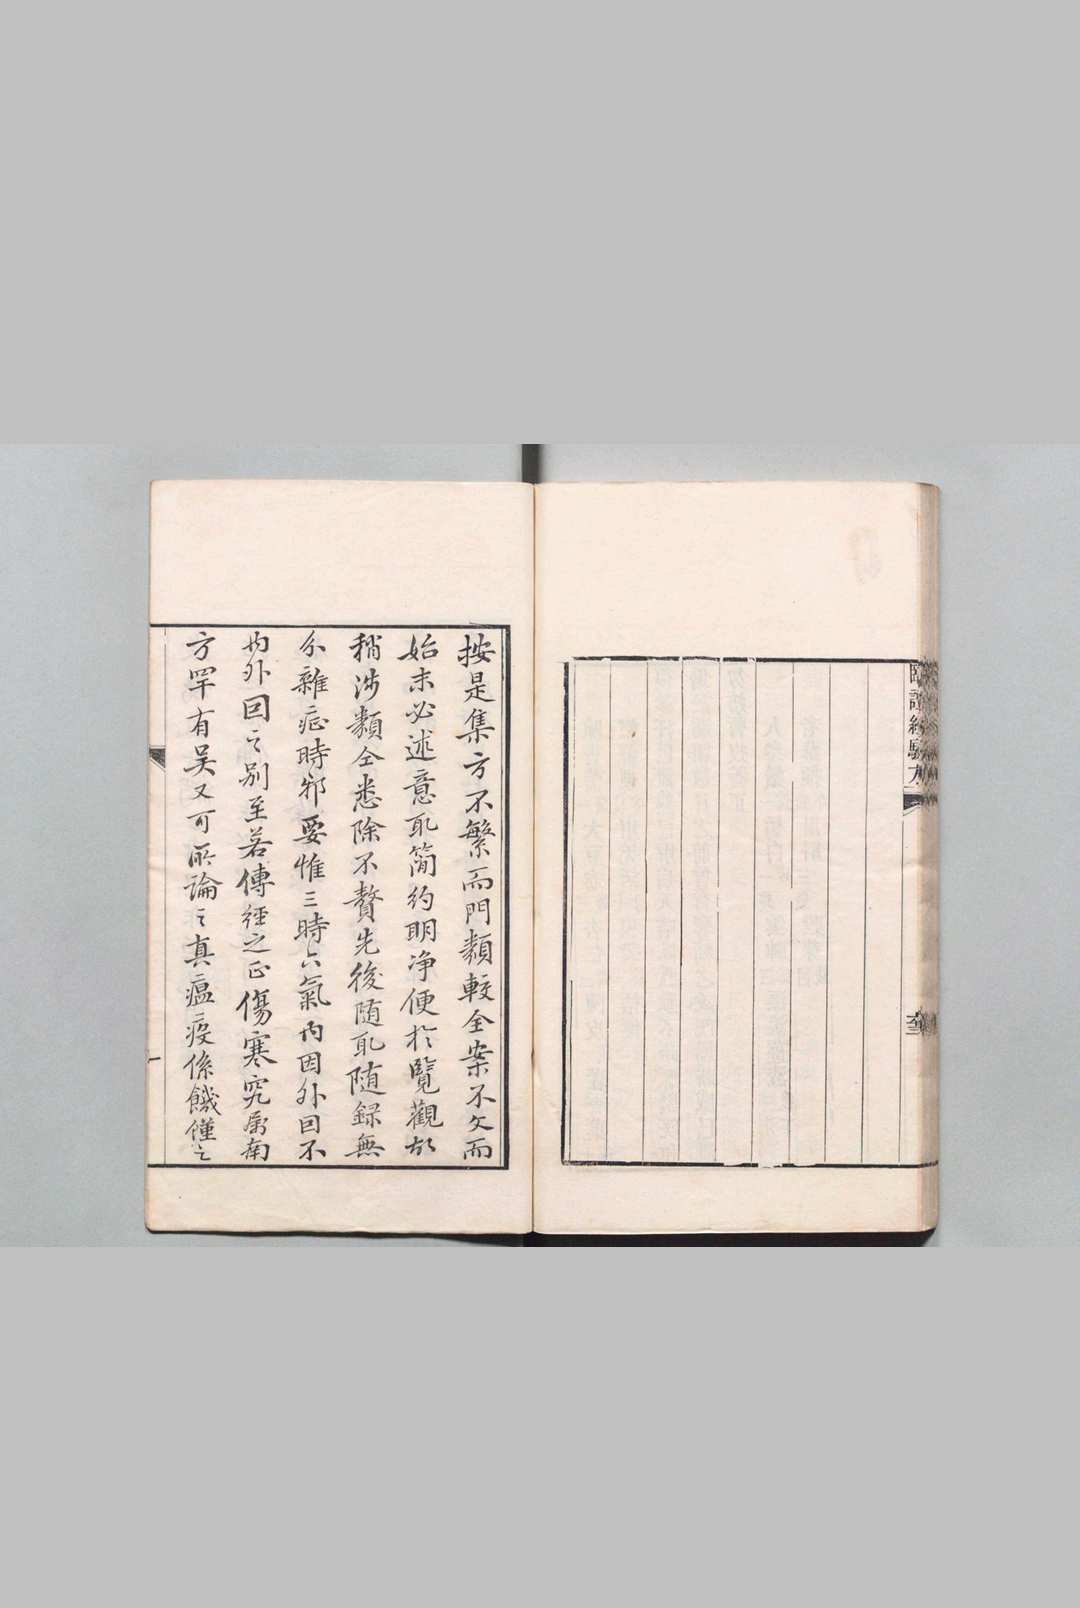 臨證經驗方
按是集方不繁而門類較全案不文而
始末必述意取簡約明淨便於覽觀故
稍涉類仝悉除不贅先後随取随録無
分雜症時邪要惟三時六氣内因外因不
内外因之别至若傳經之正傷寒究屬南
方罕有吴又可所論之真瘟疫係饑饉之